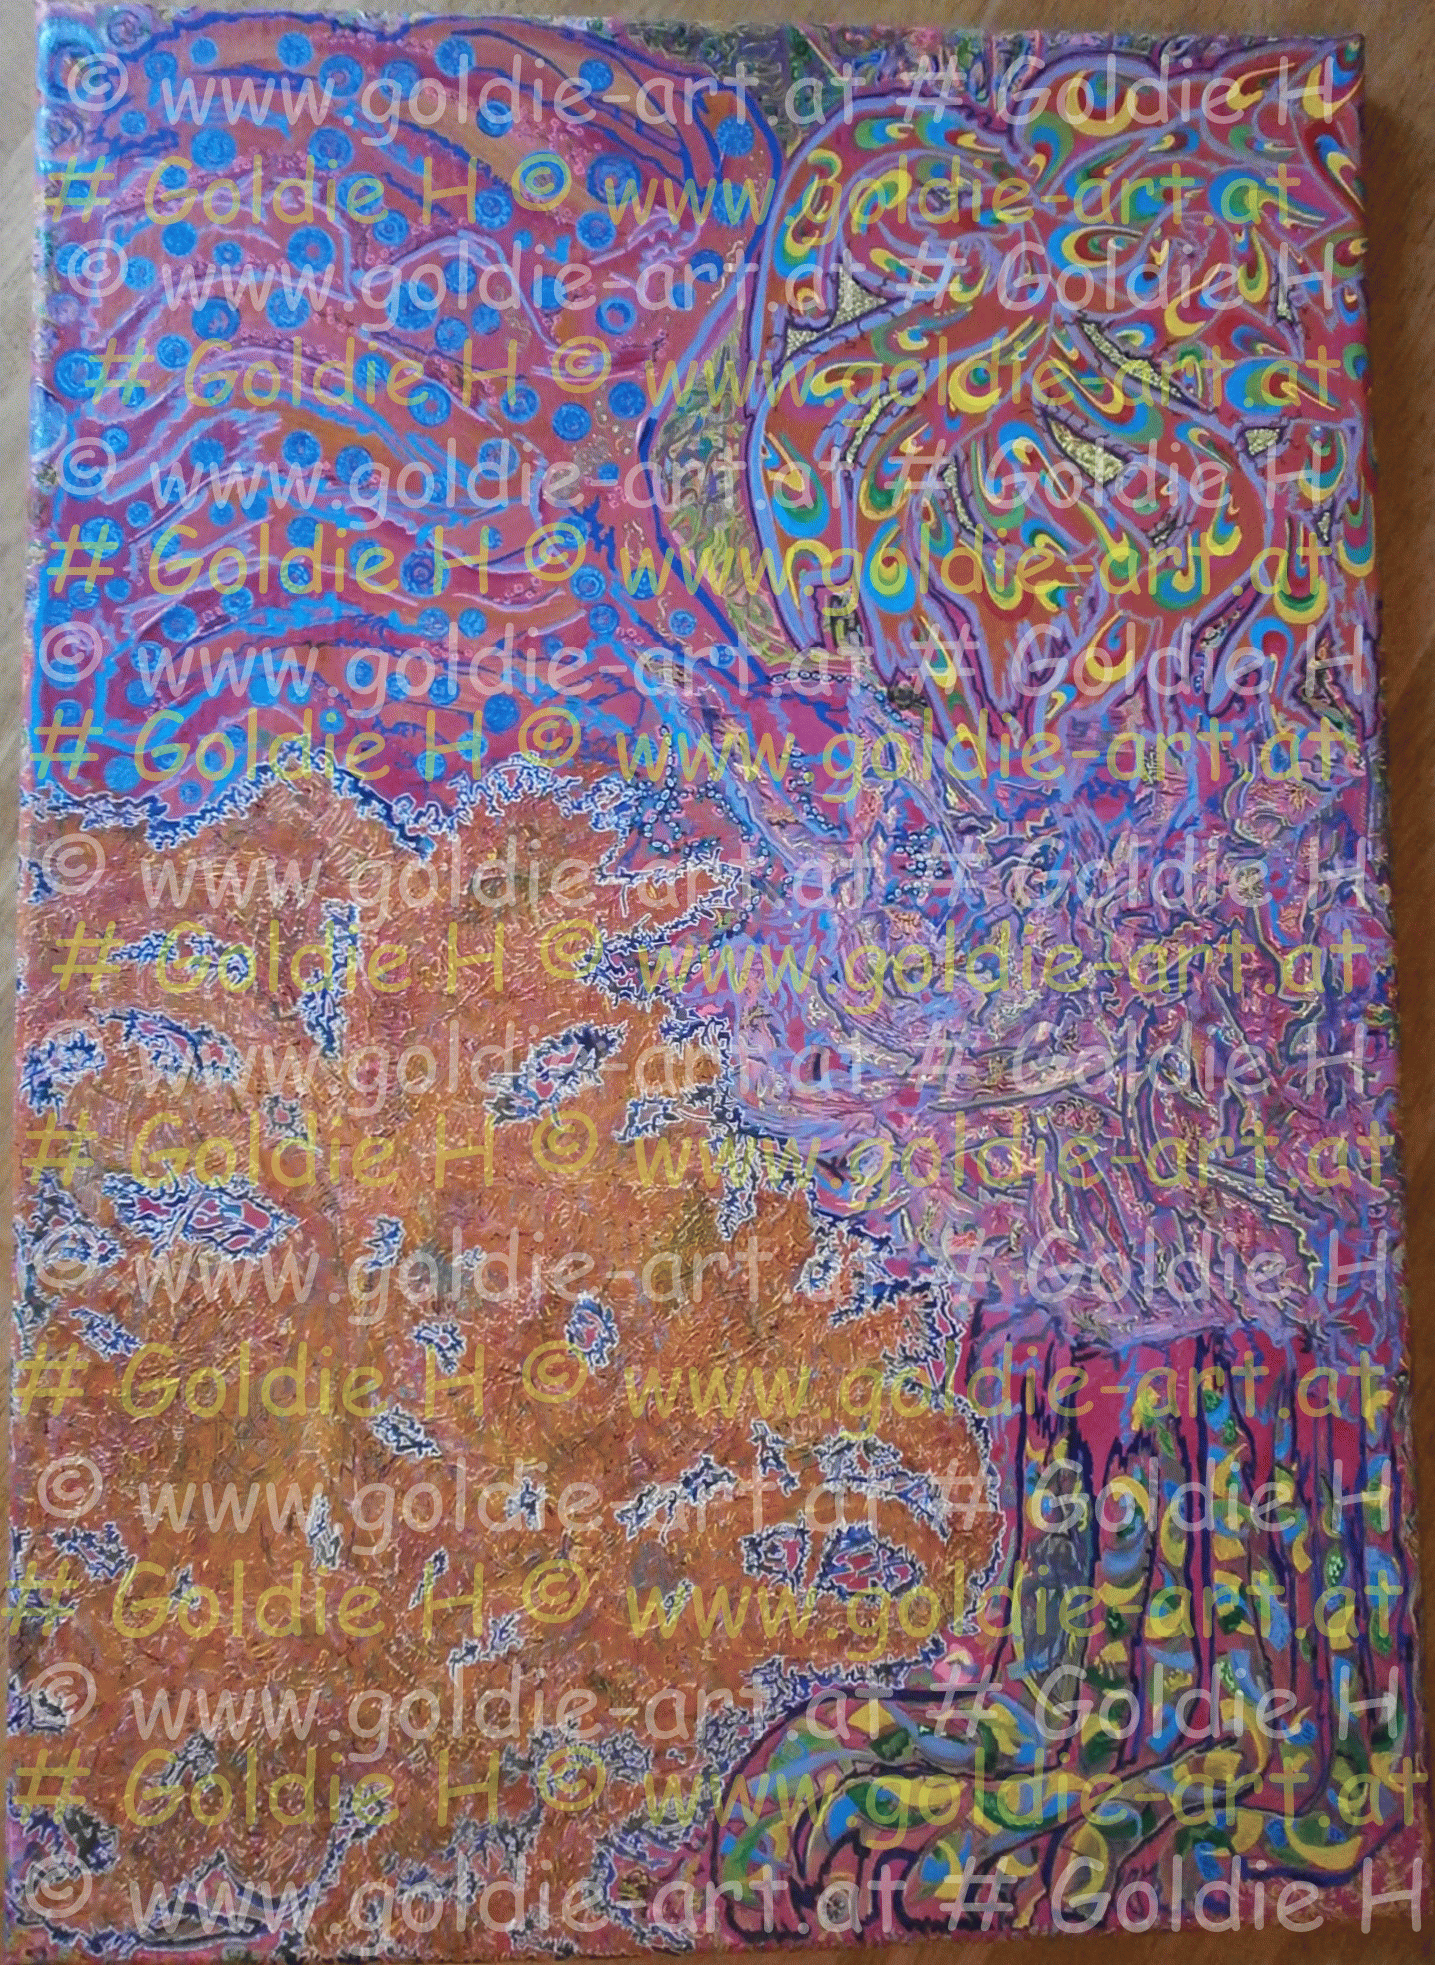 © www.goldie-art.at # Goldie H
# Goldie H © www.goldie-art.at
© www.goldie-art.at # Goldie H
# Goldie H © www.goldie-art.at
© www.goldie-art.at # Goldie H
# Goldie H © www.goldie-art.at
© www.goldie-art.at # Goldie H
# Goldie H © www.goldie-art.at
© www.goldie-art.at # Goldie H
# Goldie H © www.goldie-art.at
© www.goldie-art.at # Goldie H
# Goldie H © www.goldie-art.at
© www.goldie-art.at # Goldie H
# Goldie H © www.goldie-art.at
© www.goldie-art.at # Goldie H
# Goldie H © www.goldie-art.at
© www.goldie-art.at # Goldie H
# Goldie H © www.goldie-art.at
© www.goldie-art.at # Goldie H